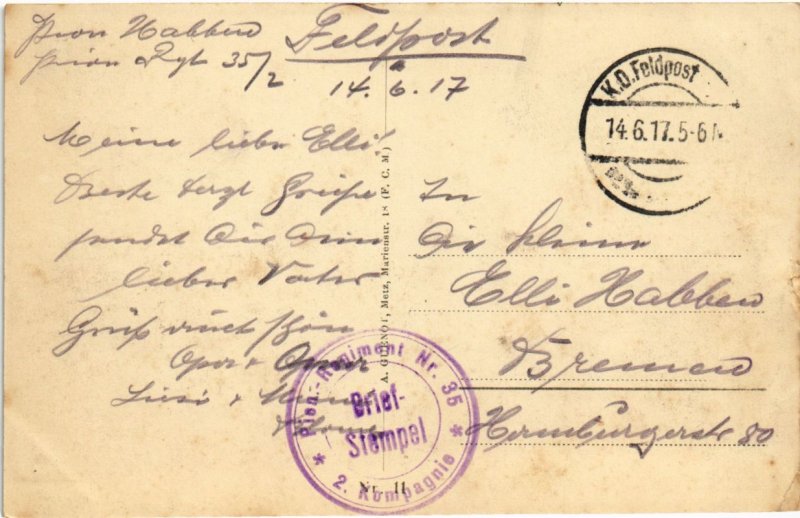 Pion Habben
Feldpost
Pion Rgt 35/2
14.6.17
Meine liebe Elli!
Beste herzl Grüße
sendet Dir Dein
lieber Vater
Grüß auch schön
Opa + Oma
Lisi + Mama
K.D. Feldpost
14.6.17. 5-6 N
An
Die kleine
Elli Habben
Bremen
Hamburgerstr 80
A. GUENOT, Metz, Marienstr. 18 (F. C. M.)
Pion.-Regiment Nr. 35
Brief-
Stempel
* 2. Kompagnie *
Nr. 11